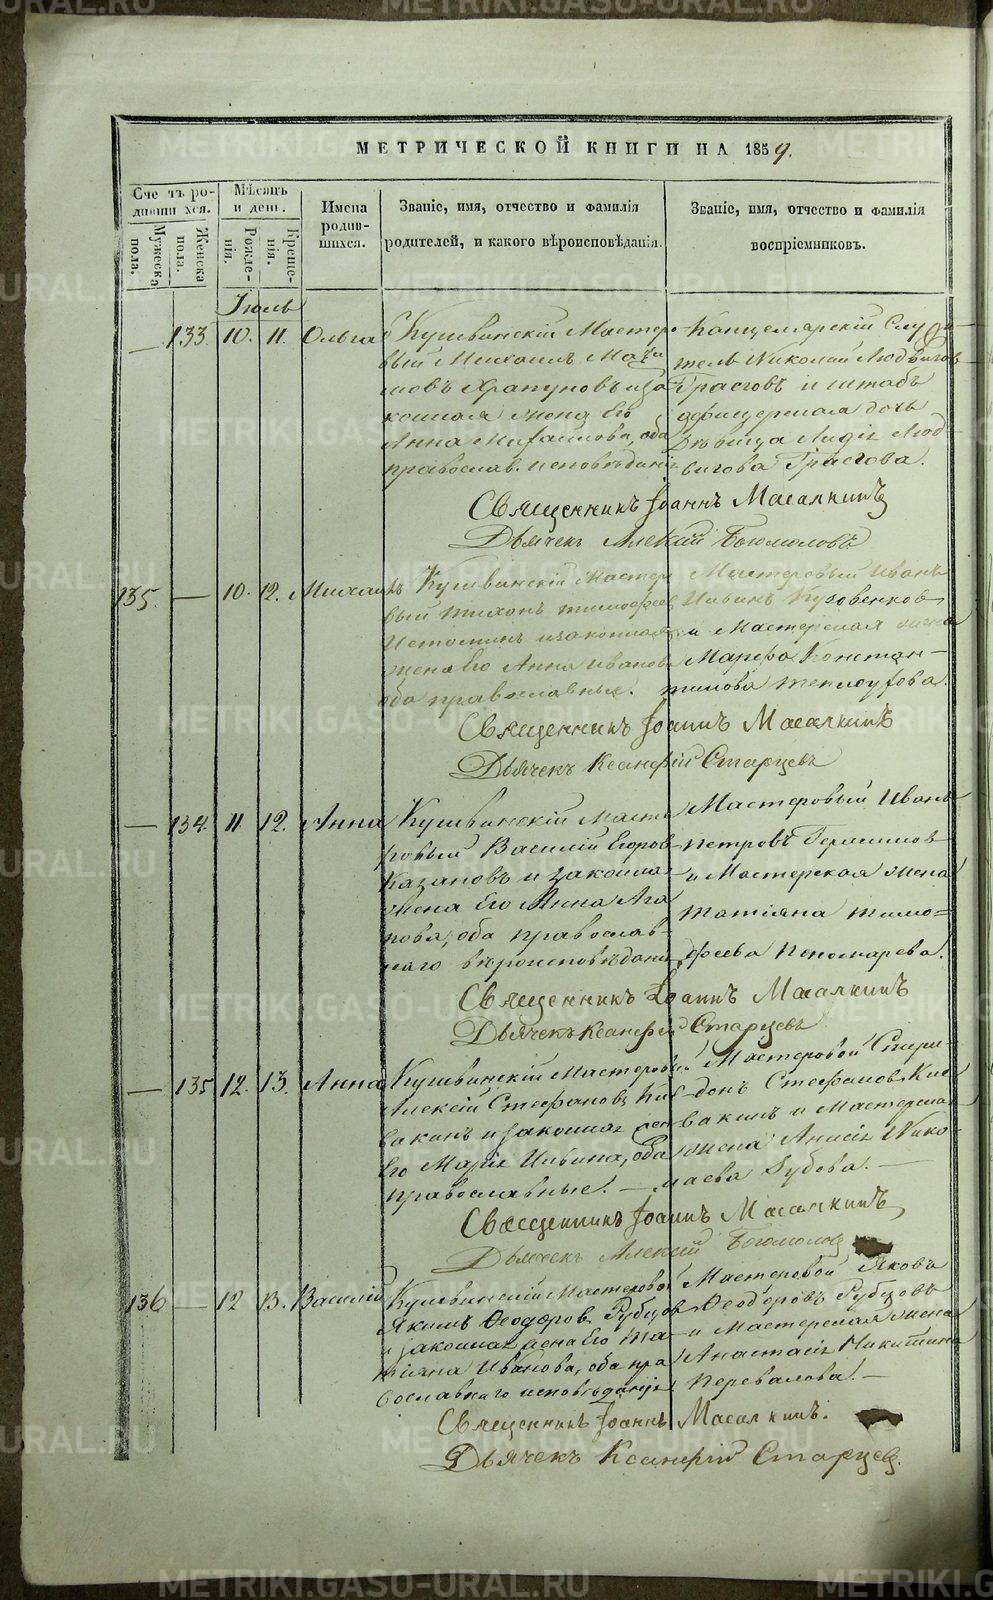 МЕТРИЧЕСКОЙ КНИГИ НА 1859.
Счетъ родившихся.
Мужеска пола.
Женска пола.
Мѣсяцъ и день.
Рожденія.
Крещенія.
Имена родившихся.
Званіе, имя, отчество и фамилія родителей, и какого вѣроисповѣданія.
Званіе, имя, отчество и фамилія воспріемниковъ.
Іюль
— 133 10. 11. Ольга
Кушвинскій Мастеро-
вый Михаилъ
Храпуновъ и за-
конная жена Его
Анна Михайлова, оба
православ. исповѣданія
Канцелярскій Служи-
тель Николай Людвигов
Грасговъ и штабъ
офицерская дочь
Дѣвица Лидія Люд-
вигова Грасгова.
Священникъ Іоаннъ Масалкинъ
Дьячекъ Алексій Богомоловъ
135. — 10. 12. Михаилъ
Кушвинскій Мастеро
вый Тихонъ Тимофеев
Истоминъ и законная
жена Его Анна Иванова
оба православные.
Мастеровый Иванъ
Ильинъ
и Мастерская жена
Марфа Констан-
тинова Теплоухова.
Священникъ Іоаннъ Масалкинъ
Дьячекъ Ксанфій Старцевъ
— 134. 11 12. Анна
Кушвинскій Масте
ровый Василій Егоров
Казановъ и законная
жена Его Анна Ага
пова, оба православ-
наго вѣроисповѣданія
Мастеровый Иванъ
Петровъ Герасимов
и Мастерская жена
Татіяна Тимо=
феева Пономарева.
Священникъ Іоаннъ Масалкинъ
Дьячекъ Ксанфій Старцевъ
— 135 12. 13. Анна
Кушвинскій Мастеровый
Алексій Стефановъ Кив
вакинъ и законная жена
Его Марія Ильина, оба
православные. —
Мастеровой Спири-
донъ Стефановъ Кив
вакинъ и Мастерская
жена Анисія Нико-
лаева Зубова. —
Священникъ Іоаннъ Масалкинъ
Дьячекъ Алексій Богомолов
136 — 12 13. Василій
Кушвинскій Мастеровой
Якимъ Ѳеодоров Рубцов
и законная жена Его Та-
тіяна Иванова, оба пра
вославнаго исповѣданія
Мастеровой Яковъ
Ѳеодоровъ Рубцовъ
и Мастерская жена
Анастасія Никитина
Перевалова. —
Священникъ Іоаннъ Масалкинъ.
Дьячекъ Ксанфій Старцев.
METRIKI.GASO-URAL.RU